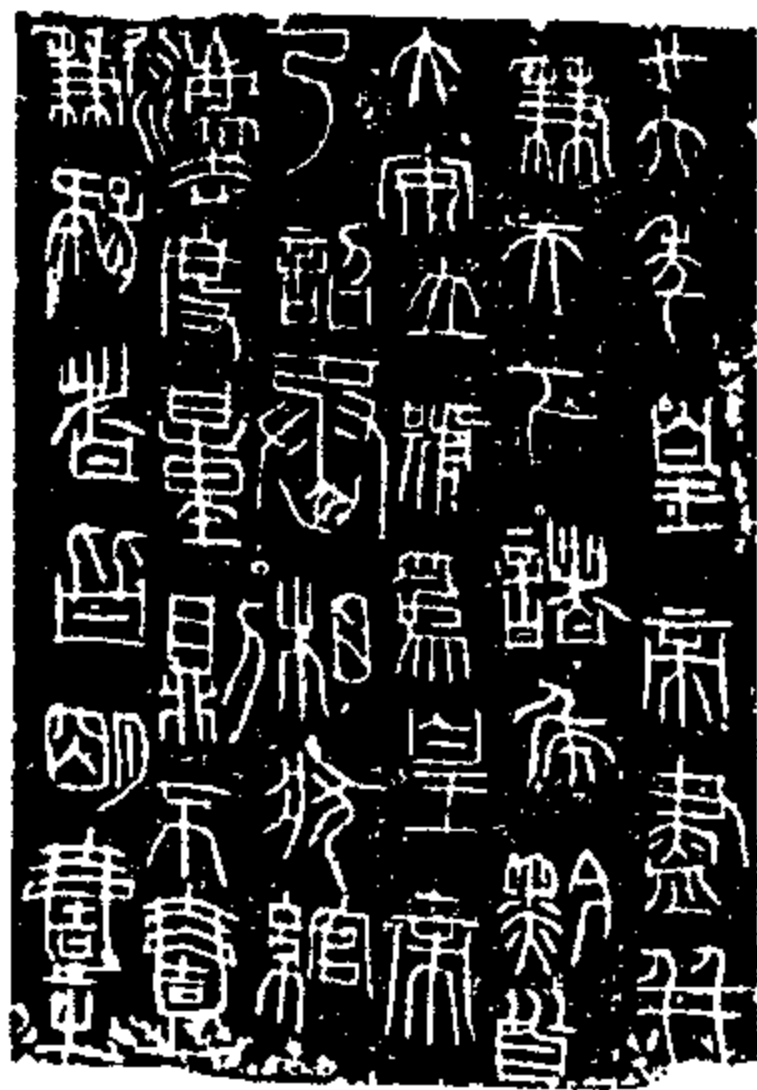 廿六年皇帝盡并
兼天下諸侯黔首
大安立號為皇帝
乃詔丞相狀綰
灋度量則不壹
歉疑者皆明壹之